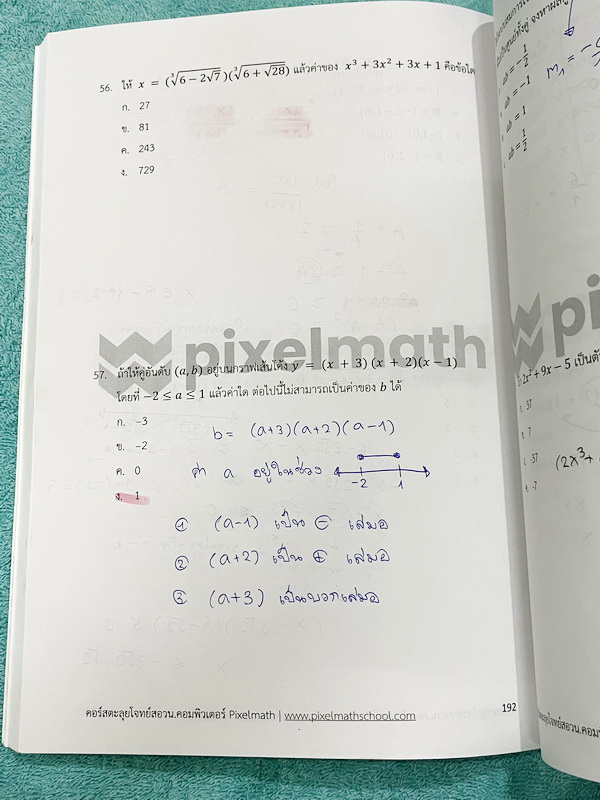 56. ให้ x = (∛6 − 2√7)(∛6 + √28) แล้วค่าของ x³ + 3x² + 3x + 1 คือข้อใด
ก. 27
ข. 81
ค. 243
ง. 729
pixelmath
57. ถ้าให้คู่อันดับ (a, b) อยู่บนกราฟเส้นโค้ง y = (x + 3)(x + 2)(x − 1)
โดยที่ −2 ≤ a ≤ 1 แล้วค่าใด ต่อไปนี้ไม่สามารถเป็นค่าของ b ได้
ก. −3
ข. −2
ค. 0
ง. 1
b = (a+3)(a+2)(a−1)
ค่า a อยู่ในช่วง
−2 1
① (a−1) เป็น ⊖ เสมอ
② (a+2) เป็น ⊕ เสมอ
③ (a+3) เป็นบวกเสมอ
คอร์สตะลุยโจทย์สอวน.คอมพิวเตอร์ Pixelmath | www.pixelmathschool.com
192
ab = −1/2
ab = −1
ab = 1
ab = 1/2
pix
2x² + 9x − 5 เป็นตัว
37
7
-37
-7
(2x³+